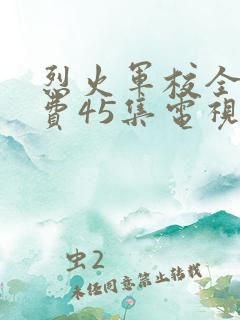 烈火軍校全
費45集電視
虫2
未经同意禁止转载